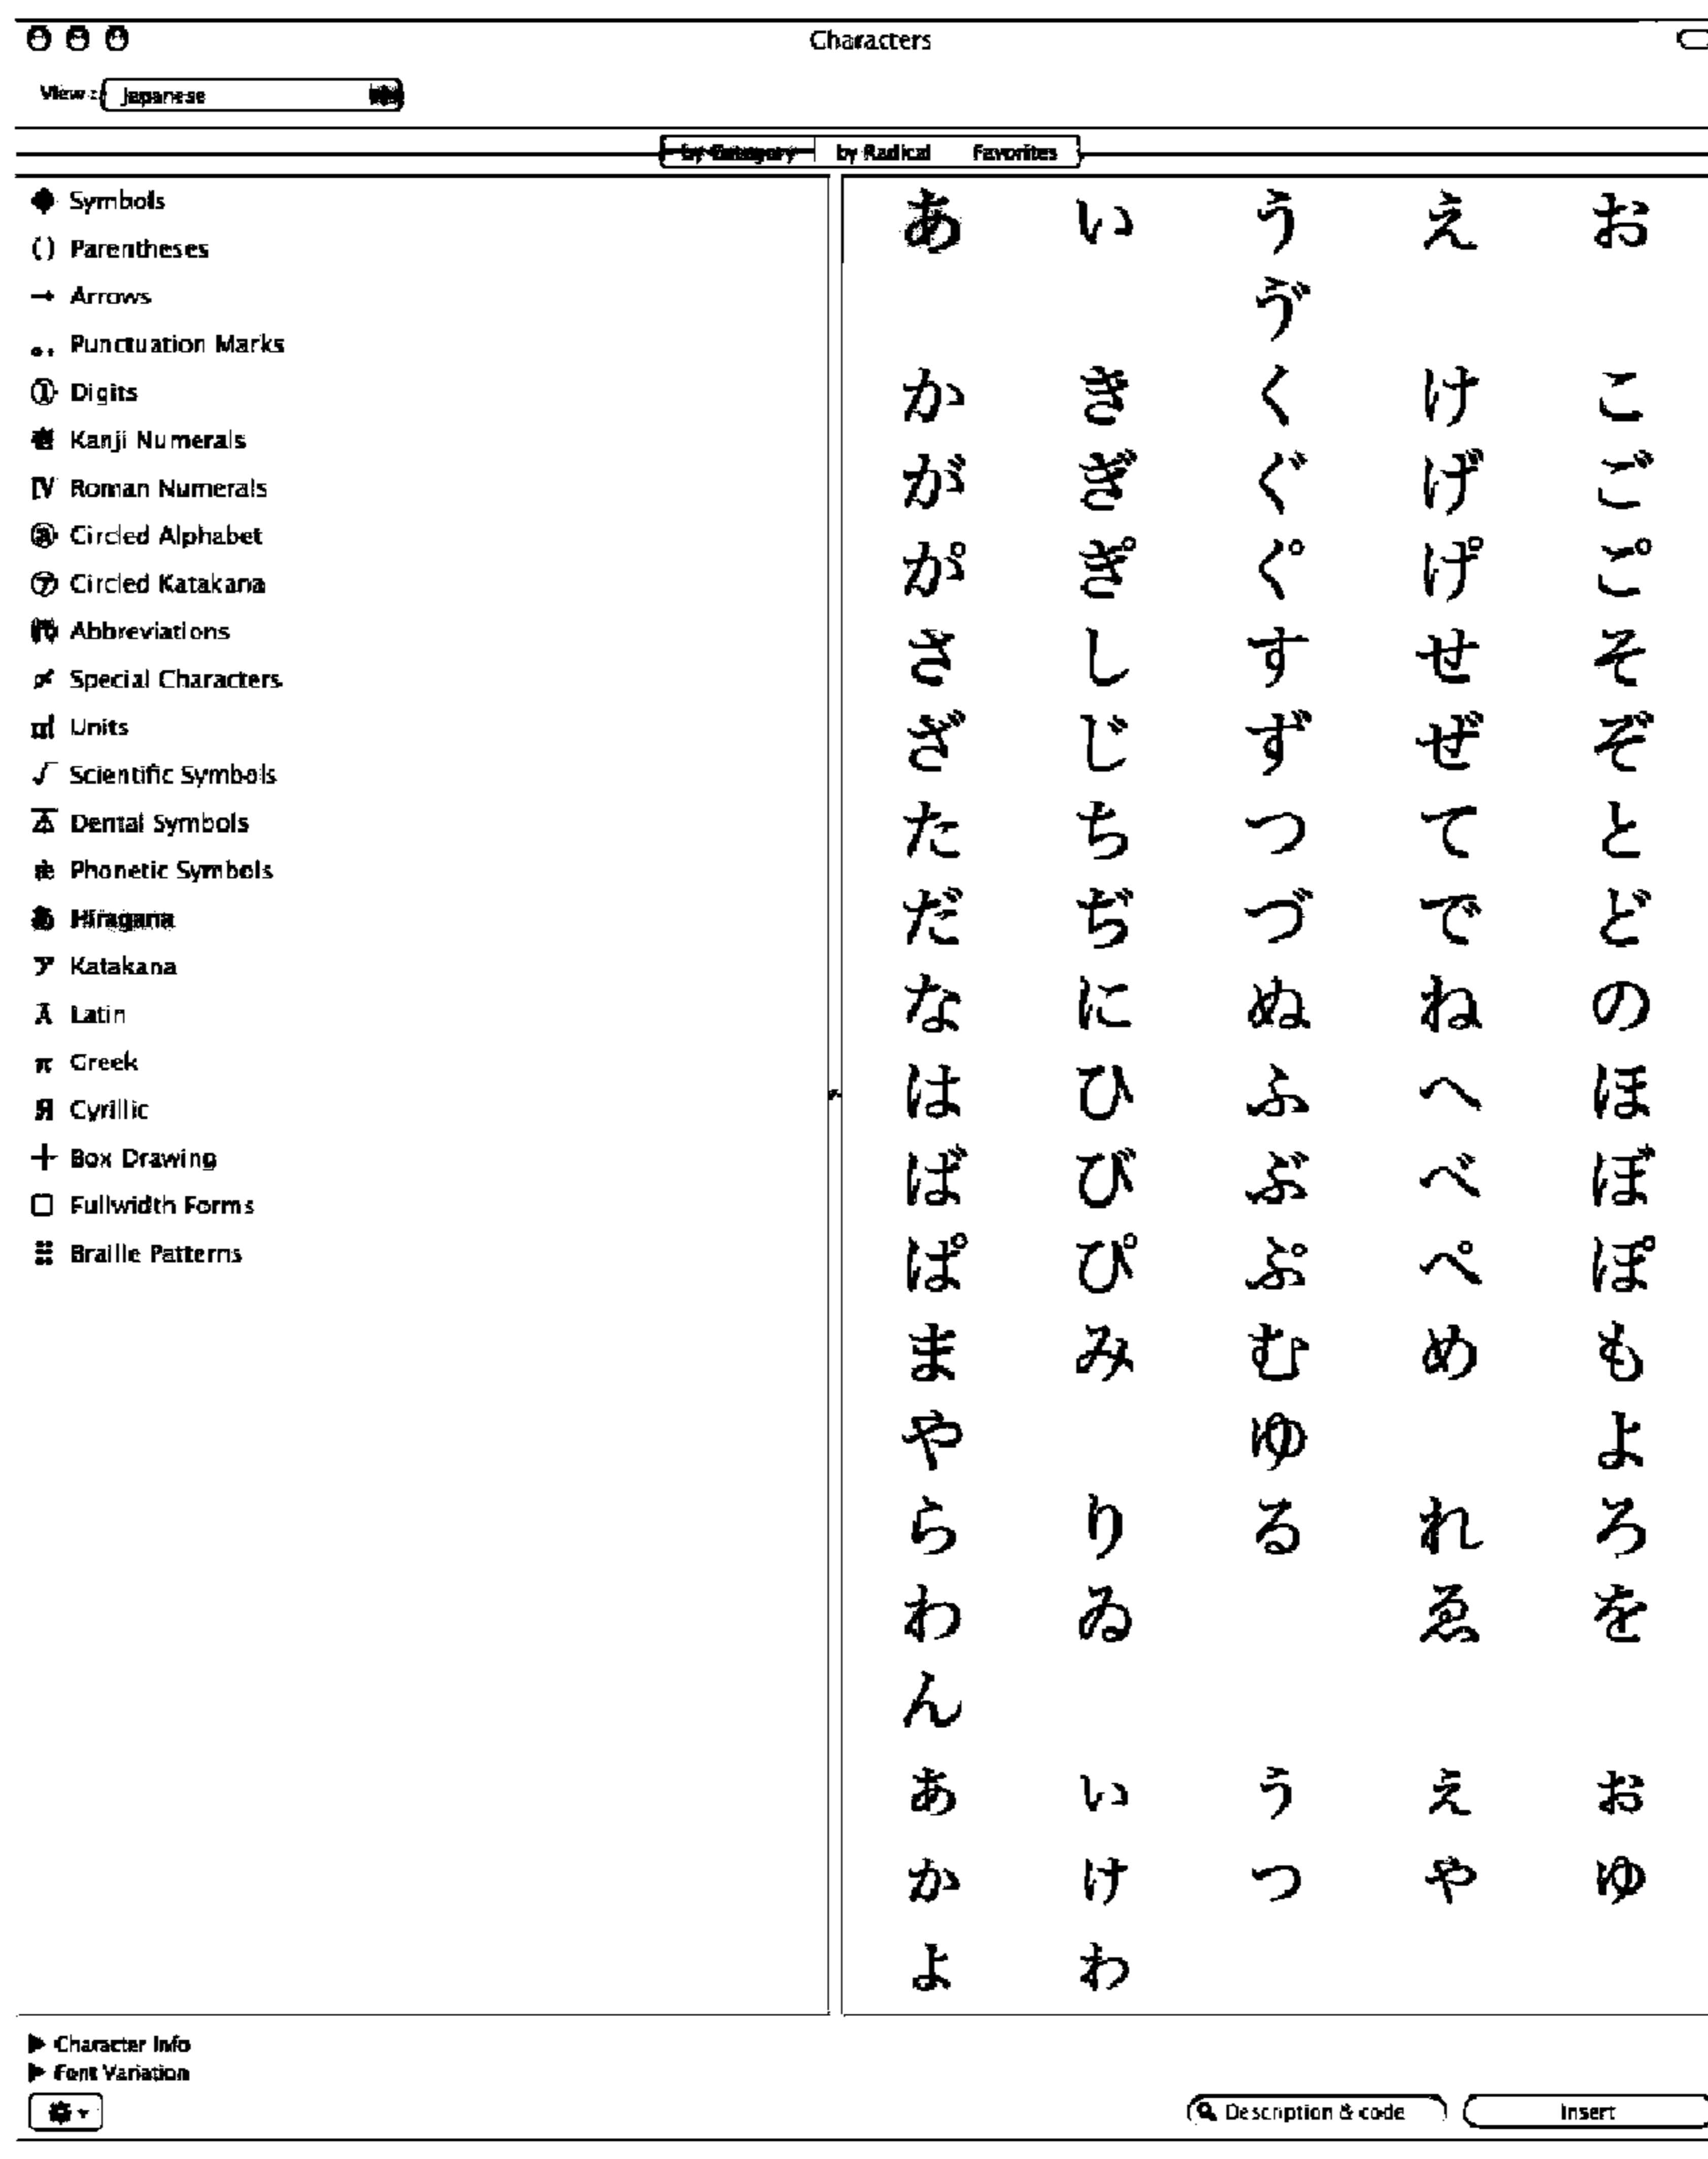 Characters
View: Japanese
by Category by Radical Favorites
Symbols
() Parentheses
→ Arrows
Punctuation Marks
① Digits
Kanji Numerals
IV Roman Numerals
ⓐ Circled Alphabet
㋐ Circled Katakana
Abbreviations
Special Characters
Units
√ Scientific Symbols
Dental Symbols
Phonetic Symbols
あ Hiragana
ア Katakana
Latin
π Greek
Я Cyrillic
Box Drawing
Fullwidth Forms
Braille Patterns
あ い う え お
ゔ
か き く け こ
が ぎ ぐ げ ご
か゚ き゚ く゚ け゚ こ゚
さ し す せ そ
ざ じ ず ぜ ぞ
た ち つ て と
だ ぢ づ で ど
な に ぬ ね の
は ひ ふ へ ほ
ば び ぶ べ ぼ
ぱ ぴ ぷ ぺ ぽ
ま み む め も
や ゆ よ
ら り る れ ろ
わ ゐ ゑ を
ん
ぁ ぃ ぅ ぇ ぉ
ゕ ゖ っ ゃ ゅ
ょ ゎ
Character Info
Font Variation
Description & code Insert